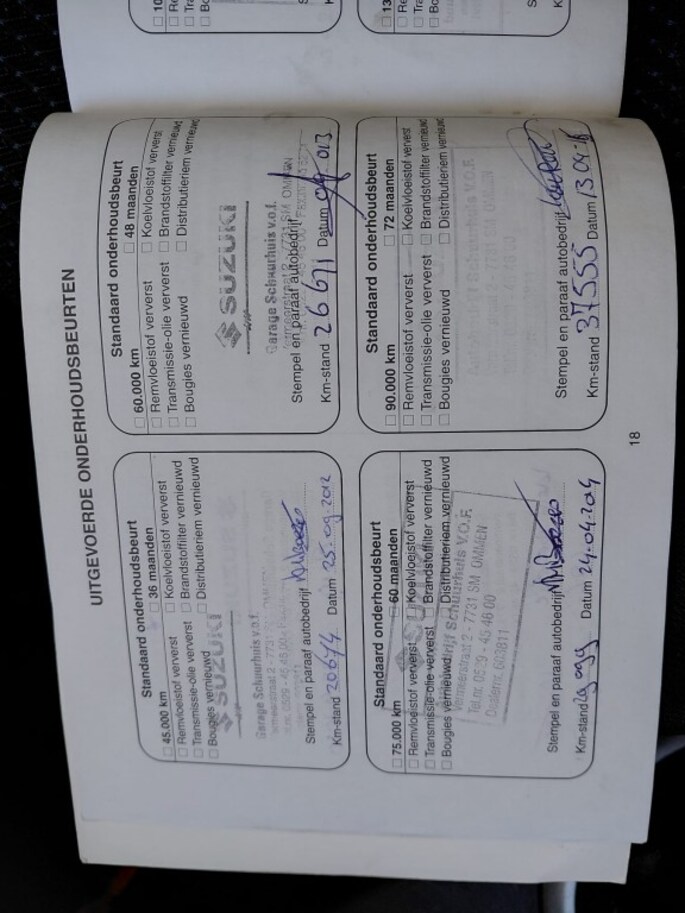 UITGEVOERDE ONDERHOUDSBEURTEN
Standaard onderhoudsbeurt
45.000 km 36 maanden
Remvloeistof ververst Koelvloeistof ververst
Transmissie-olie ververst Brandstoffilter vernieuwd
Bougies vernieuwd Distributieriem vernieuwd
SUZUKI
Garage Schuurhuis v.o.f.
Stempel en paraaf autobedrijf
Km-stand 20674 Datum 25.09.2012
Standaard onderhoudsbeurt
60.000 km 48 maanden
Remvloeistof ververst Koelvloeistof ververst
Transmissie-olie ververst Brandstoffilter vernieuwd
Bougies vernieuwd Distributieriem vernieuwd
SUZUKI
Garage Schuurhuis v.o.f.
Vermeerstraat 2 - 7731 SM OMMEN
Stempel en paraaf autobedrijf
Km-stand 26671 Datum
Standaard onderhoudsbeurt
75.000 km 60 maanden
Remvloeistof ververst Koelvloeistof ververst
Transmissie-olie ververst Brandstoffilter vernieuwd
Bougies vernieuwd Distributieriem vernieuwd
Schuurhuis V.O.F.
Vermeerstraat 2 - 7731 SM OMMEN
Tel.nr. 0529 - 45 46 00
603811
Stempel en paraaf autobedrijf
Km-stand Datum 24.04.204
Standaard onderhoudsbeurt
90.000 km 72 maanden
Remvloeistof ververst Koelvloeistof ververst
Transmissie-olie ververst Brandstoffilter vernieuwd
Bougies vernieuwd Distributieriem vernieuwd
Stempel en paraaf autobedrijf
Km-stand 37555 Datum 13.09.16
18